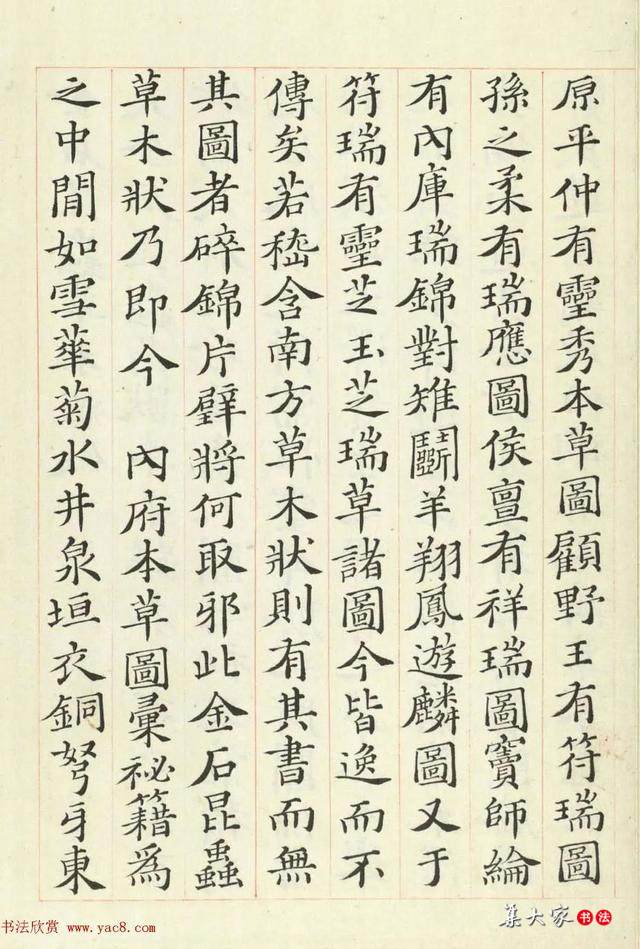 原平仲有靈秀本草圖顧野王有符瑞圖
孫之柔有瑞應圖侯亶有祥瑞圖竇師綸
有內庫瑞錦對雉鬬羊翔鳳遊麟圖又于
符瑞有靈芝玉芝瑞草諸圖今皆逸而不
傳矣若嵇含南方草木狀則有其書而無
其圖者碎錦片璧將何取邪此金石昆蟲
草木狀乃即今 內府本草圖彙祕籍為
之中間如雪華菊水井泉垣衣銅弩牙東
书法欣赏 www.yac8.com
集大家 书法